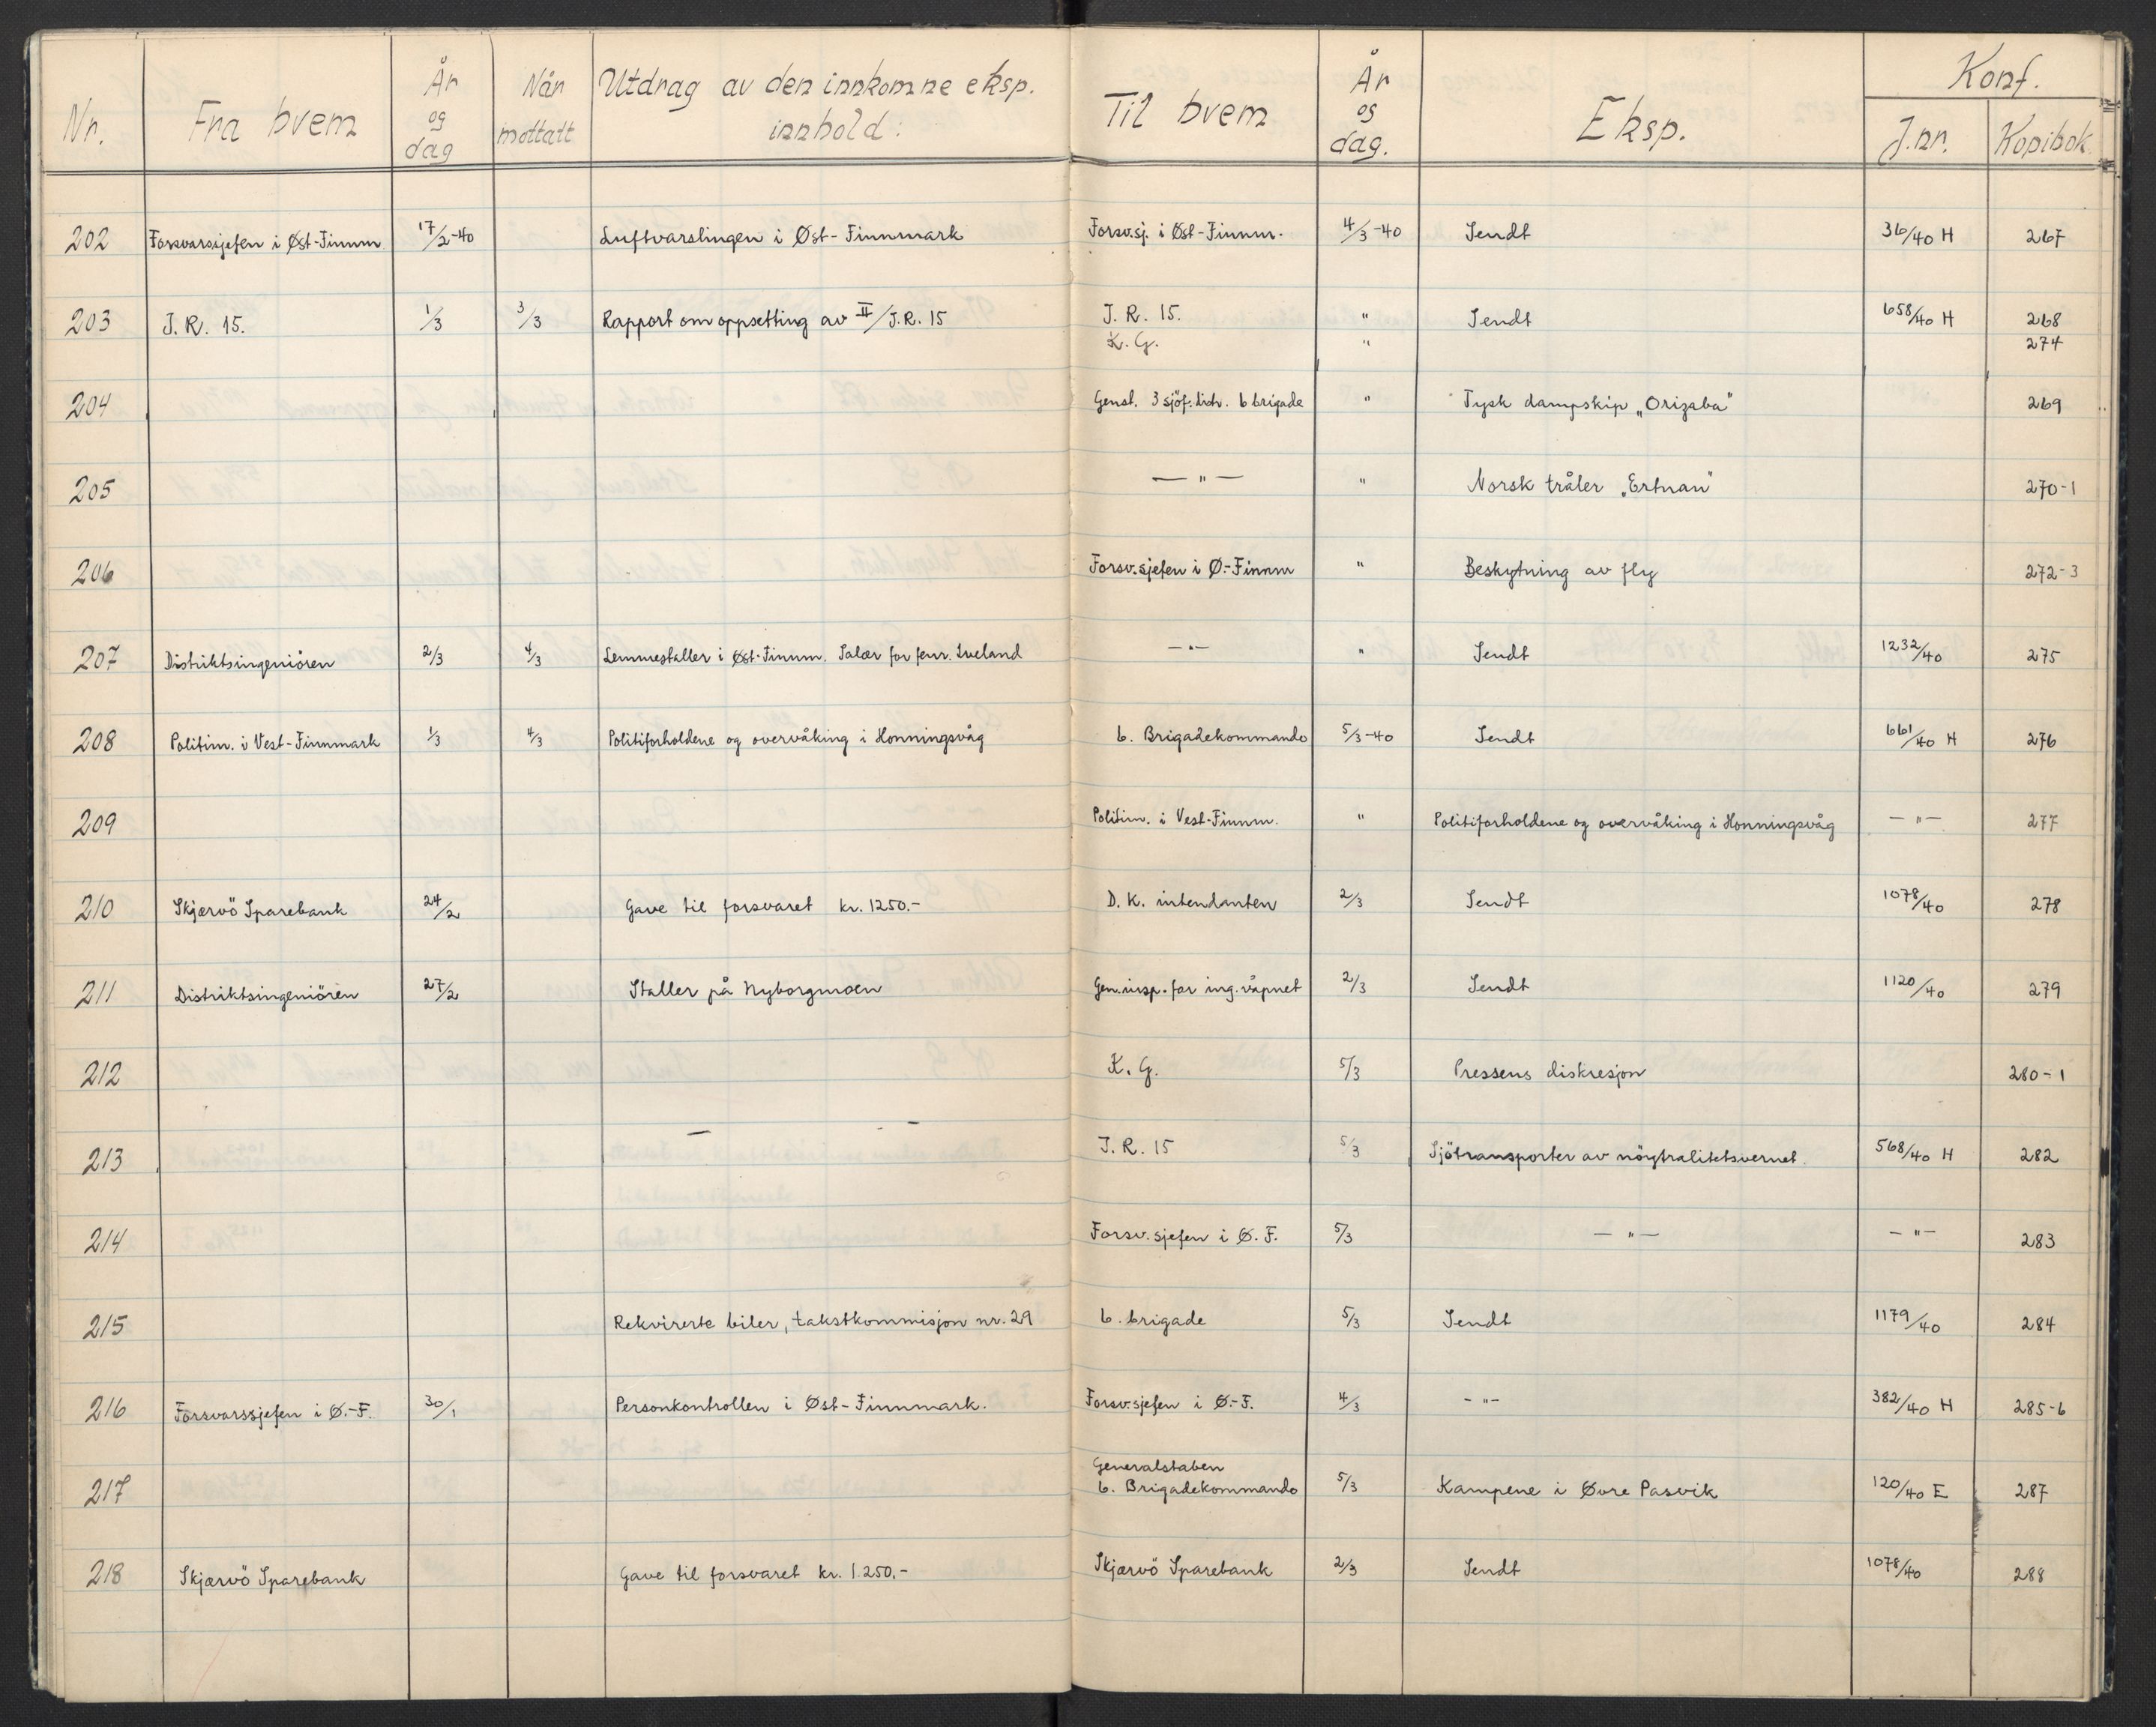 Nr. Fra hvem År og dag Når mottatt Utdrag av den innkomne eksp. innhold: Til hvem År og dag. Eksp. Konf. J.nr. Kopibok
202 Forsvarssjefen i Øst-Finnm 17/2-40 Luftvarslingen i Øst-Finnmark Forsv.sj. i Øst-Finnm. 4/3-40 Sendt 36/40 H 267
203 J.R. 15. 1/3 3/3 Rapport om oppsetting av II/J.R. 15 J.R. 15. " Sendt 658/40 H 268
K.G. " 274
204 Genst. 3 sjöf. distr. 6 brigade " Tysk dampskip „Orizaba" 269
205 — " — " Norsk tråler „Ertnan" 270-1
206 Forsv.sjefen i Ø.-Finnm " Beskytning av fly 272-3
207 Distriktsingeniören 2/3 4/3 Lemmestaller i Øst-Finnm. Salær for fenr. Sveland — " — " Sendt 1232/40 275
208 Politim. i Vest-Finnmark 1/3 4/3 Politiforholdene og overvåking i Honningsvåg 6. Brigadekommando 5/3-40 Sendt 661/40 H 276
209 Politim. i Vest-Finnm. " Politiforholdene og overvåking i Honningsvåg — " — 277
210 Skjærvö Sparebank 24/2 Gave til forsvaret kr. 1250.- D.K. intendanten 2/3 Sendt 1078/40 278
211 Distriktsingeniören 27/2 Staller på Nyborgmoen Gen.insp. for ing.våpnet 2/3 Sendt 1120/40 279
212 K.G. 5/3 Pressens diskresjon 280-1
213 J.R. 15 5/3 Sjötransporter av nöytralitetsvernet. 568/40 H 282
214 Forsv.sjefen i Ø.F. 5/3 — " — — " — 283
215 Rekvirerte biler, takstkommisjon nr. 29 6. brigade 5/3 Sendt 1179/40 284
216 Forsvarssjefen i Ø.-F. 30/1 Personkontrollen i Øst-Finnmark. Forsv.sjefen i Ø.-F. 4/3 — " — 382/40 H 285-6
Generalstaben
217 6. Brigadekommando 5/3 Kampene i Øvre Pasvik 120/40 E 287
218 Skjærvö Sparebank Gave til forsvaret kr. 1.250.- Skjærvö Sparebank 2/3 Sendt 1078/40 288